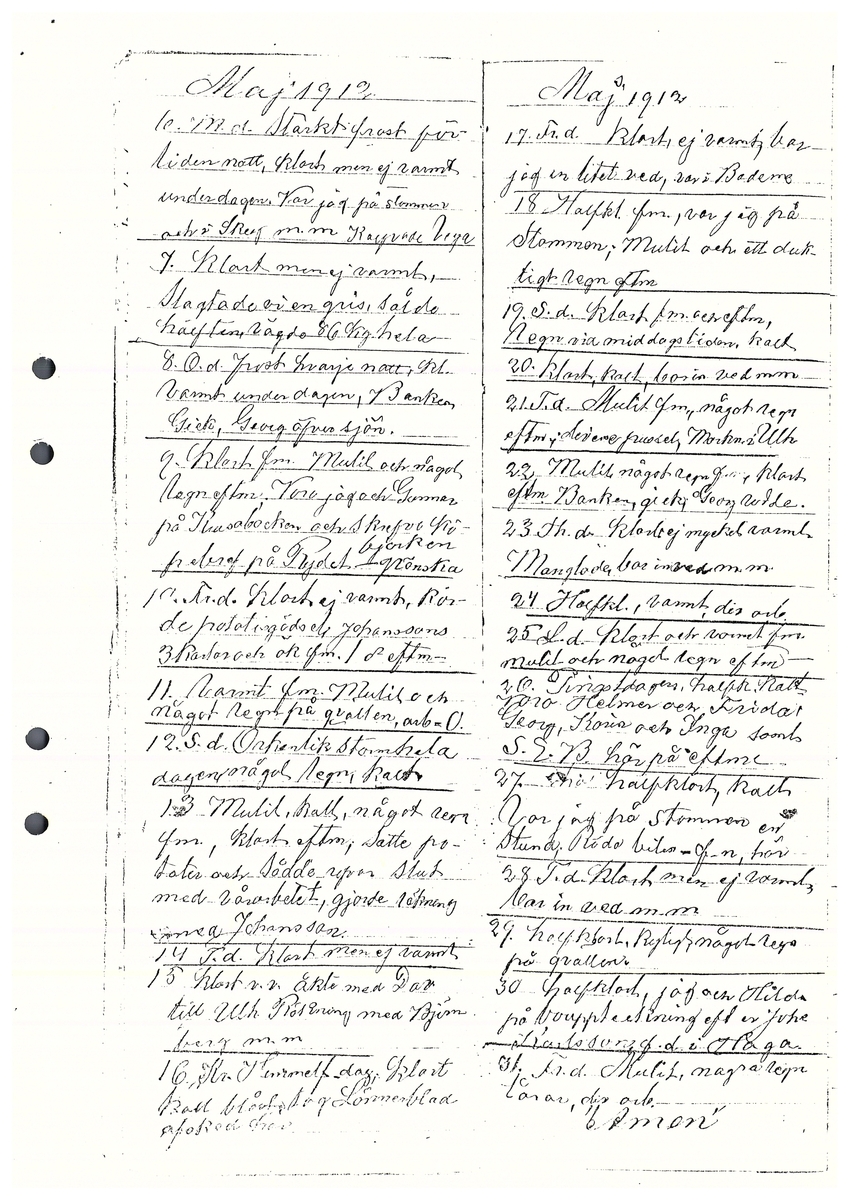 Maj 1912
6. M.d. Starkt frost för-
liden natt, klart men ej varmt
under dagen. Var jag på stommen
och i Skeef m.m Vegr
7. Klart men ej varmt,
Slagtade vi en gris, sålde
hälften, vägde 86 kg. hela
8. O.d. frost hvarje natt, kl.
varmt under dagen, Banken
Gick, Georg öfver sjön.
9. Klart fm. Mulit och något
regn eftm. Voro jag och Gunnar
på och skrefvo kö-
pebref på Rydet björken
grönska
10. Fr.d. Klart ej varmt, Kör-
de potatisgödsel, Johanssons
3 Karlar och ök fm. 1 d eftm
11. Varmt fm. Mulit och
något regn på qvällen, arb = 0.
12. S.d. Orkanlik storm hela
dagen något regn, kallt
13 Mulit, kallt, något regn
fm., klart eftm; Satte po-
tater och sådde slut
med vårarbetet, gjorde räkning
med Johansson.
14 T.d. Klart men ej varmt
15 Klart v.v. åkte med Dav
till Ulh med Björn
berg m.m
16. Kr. Himmelf. dag. Klart
kall Lönnerblad

Maj 1912
17. Fr.d. Klart, ej varmt, bar
jag in litet ved, var i Badene
18 Halfkl. fm., var jag på
Stommen; Mulit och ett duk-
tigt regn eftm
19. S.d. Klart fm. och eftm,
Regn vid middagstiden, kallt
20. Klart, kallt, bar in ved m m
21. T.d. Mulit fm, något regn
eftm; diverse pussel, i Ulh
22. Mulit något regn fm, klart
eftm. Banken, gick, Georg rodde.
23 Th.d. Klart ej mycket varmt
Manglade, bar in ved m.m.
24 Halfkl., varmt, div arb
25 L.d. Klart och varmt fm.
mulit och något regn eftm
26. Pingstdagen, halfk. kallt
Voro Helmer och Frida,
Georg, Karin och Inga samt
S. E. B. här på eftm
27. halfklart, kallt
Var jag på stommen en
Stund. Röda bilen =f=n, här
28 T.d. Klart men ej varmt,
bar in ved m.m
29. halfklart, kyligt, något regn
på qvällen
30 halfklart, jag och Hilda
på bouppteckning efter Joh:
Karlsson g.d. i Haga.
31. Fr.d. Mulit, några regn
skurar, div arb.
"Amen"